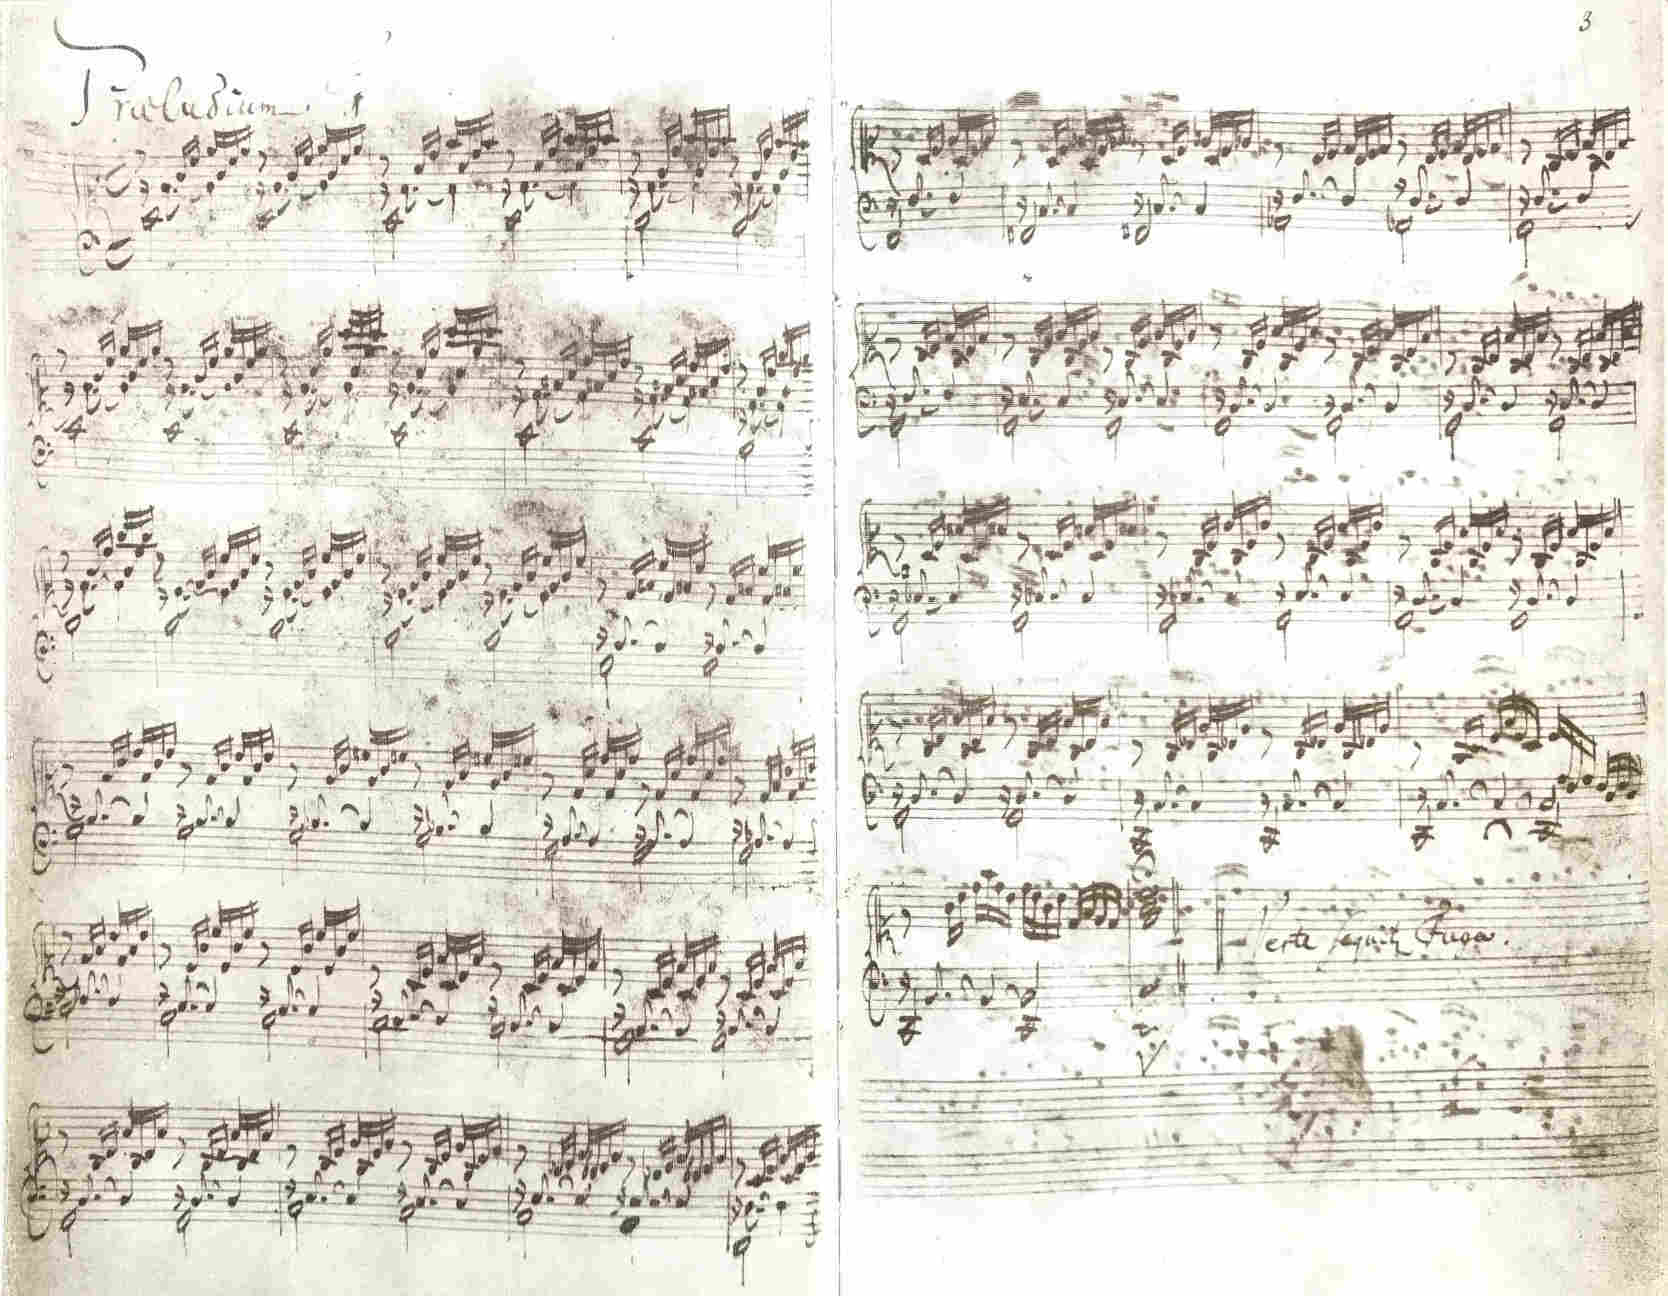 Præludium 1
3
Verte sequitur Fuga.